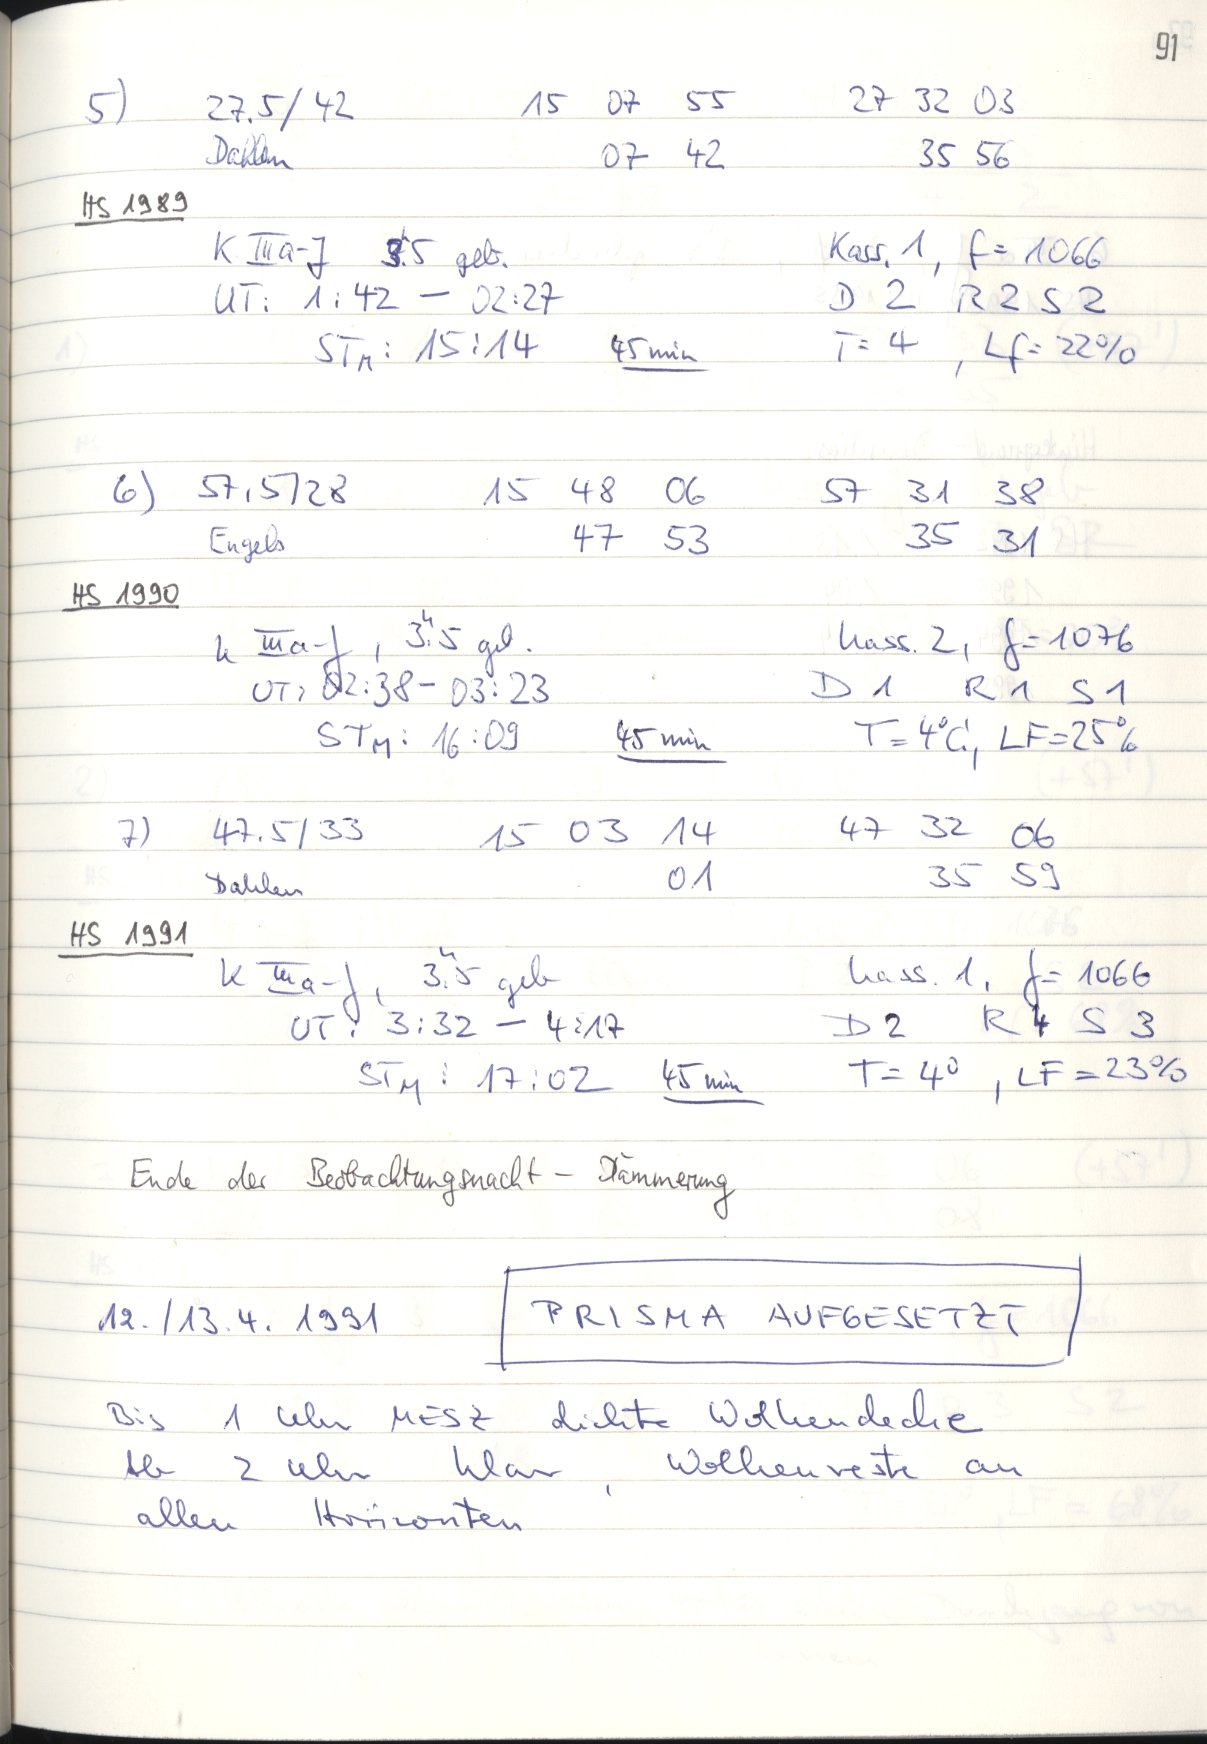 91
5) 27.5/42 15 07 55 27 32 03
Dahlen 07 42 35 56
HS 1989
K IIIa-J 3.ʰ5 geb. Kass. 1, f = 1066
UT: 1:42 – 02:27 D 2 R 2 S 2
STM: 15:14 45 min T = 4, Lf = 22%
6) 57.5/28 15 48 06 57 31 38
Engels 47 53 35 31
HS 1990
K IIIa-J, 3.ʰ5 geb. Kass. 2, f = 1076
UT: 02:38 – 03:23 D 1 R 1 S 1
STM: 16:09 45 min T = 4°C, LF = 25%
7) 47.5/33 15 03 14 47 32 06
Dahlen 01 35 59
HS 1991
K IIIa-J, 3.ʰ5 geb Kass. 1, f = 1066
UT: 3:32 – 4:17 D 2 R 4 S 3
STM: 17:02 45 min T = 4°, LF = 23%
Ende der Beobachtungsnacht – Dämmerung
12./13.4. 1991 PRISMA AUFGESETZT
Bis 1 Uhr MESZ dichte Wolkendecke
Ab 2 Uhr klar, Wolkenreste an
allen Horizonten